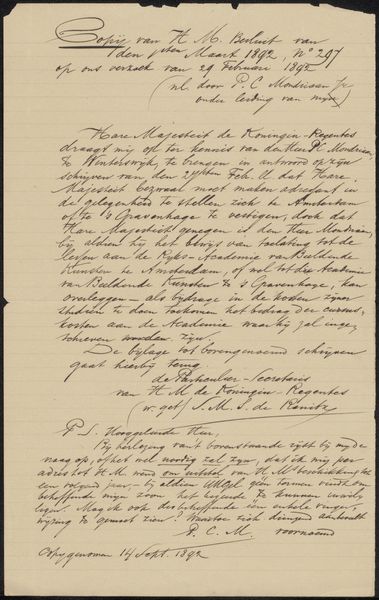 Copij van H. M. Besluit van
den 1sten Maart 1892, No 297
op ons verzoek van 29 Februari 1892
(nl. door P. C. Mondriaan Jr
onder leiding van mij)
Hare Majesteit de Koningin-Regentes
draagt mij op ter kennis van den Heer P. Mondriaan,
te Winterswijk, te brengen in antwoord op zijn
schrijven van den Feb. ll. dat Hare
Majesteit bezwaar moet maken adressant in
de gelegenheid te stellen zich te Amsterdam
of te 's Gravenhage te vestigen, doch dat
Hare Majesteit genegen is den Heer Mondriaan,
bij aldien hij het bewijs van toelating tot de
lessen aan de Rijks-Academie van Beeldende
Kunsten te Amsterdam, of wel tot de Academie
van Beeldende Kunsten te 's Gravenhage, kan
overleggen – als bijdrage in de kosten zijner
studiën te doen toekomen het bedrag der cursus-
kosten aan de Academie waar hij zal inge-
schreven worden zijn.
De bijlage tot bovengenoemd schrijven
gaat hierbij terug
de Particulier-Secretaris
van H M de Koningin-Regentes
(w. get.) S. M. S. de Ranitz
P. S. Hooggeleerde Heer,
Bij herlezing van 't bovenstaande rijst bij mij de
vraag op, of het wel noodig zal zijn, dat ik mij per
adres tot H. M. wend om van H M's beschikking te
een volgend jaar, – bij aldien UHgl. geen termen vindt om
behoeftende mijn zoon het te kunnen
Mag ik ook een enkele
wijzing te gemoet zien? Waartoe zich dringend aanbeveelt
P. C. M. voornoemd
Copij genomen 14 Sept. 1892